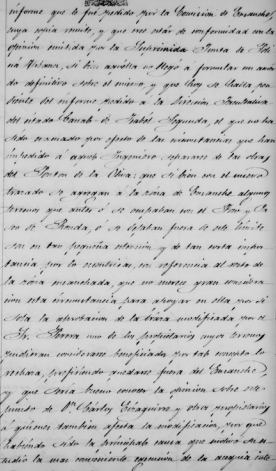 informe que le fué pedido por la Comision de Ensanche
cuya copia remite, y que cree están de conformidad con la
opinion emitida por la Suprimida Junta de Poli
cia Urbana, si bien aquella no llegó a formular un acuer
do definitivo sobre el mismo, y que hoy se halla pen
diente del informe pedido a la Direccion Facultativa
del citado Canal de Isabel Segunda, el que no ha
sido evacuado por efecto de las circunstancias que han
impedido á aquel Ingeniero separarse de las obras
del Ponton de la Oliva: que si bien con el nuevo
trazado se agregan á la zona de Ensanche algunos
terrenos que antes ó se ocupaban con el Foso y Pa
seo de Ronda, ó se dejaban fuera de este límite
son en tan pequeña estension y de tan corta impor
tancia por lo escéntricas, con referencia al resto de
la zona ensanchada, que no merece gran considera
cion esta circunstancia para apoyar en ella por sí
sola la aprobacion de la traza modificada por el
Sr. uno de los propietarios cuyos terrenos
pudieran considerarse beneficiados por tal concepto lo
rechaza, prefiriendo quedarse fuera del Ensanche,
y que sería bueno conocer la opinion sobre este
punto de Dn Carlos Eizaguirre y otros propietarios
á quienes tambien afecta la modificacion, por que
habiendo sido la principal causa que motivó su es
tudio la mas conveniente egecucion de la acequia